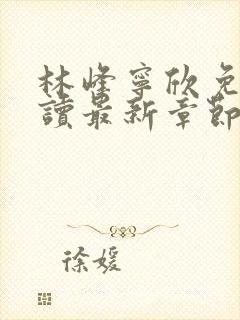 林峰寧欣免
讀最新章節
徐媛